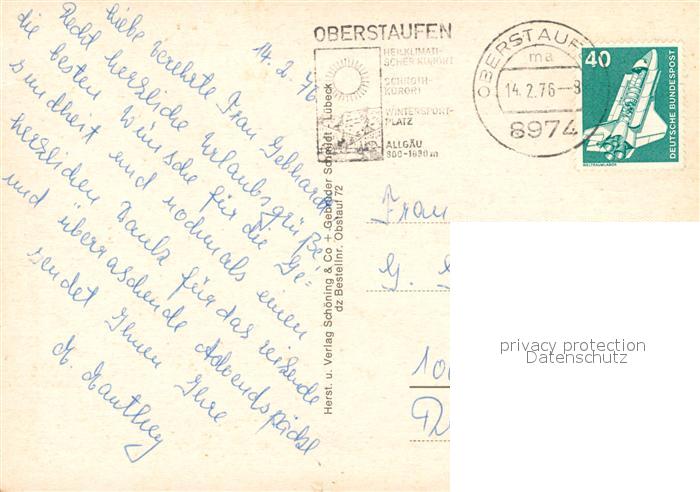 14.2.76
Liebe verehrte Frau Gebhardt
Recht herzliche Urlaubsgrüße
die besten Wünsche für die Ge-
sundheit und nochmals einen
herzlichen Dank für das reizende
und überraschende Adventspäckle
sendet Ihnen Ihre
M. Manthey
OBERSTAUFEN
HEILKLIMATI-
SCHER KURORT
SCHROTH-
KURORT
WINTERSPORT-
PLATZ
ALLGÄU
800-1800m
OBERSTAUFEN
ma
14.2.76-8
8974
40
DEUTSCHE BUNDESPOST
WELTRAUMLABOR
Herst. u. Verlag Schöning & Co + Gebrüder Schmidt · Lübeck
dz Bestellnr. Obstauf 72
Frau
G.
100
privacy protection
Datenschutz